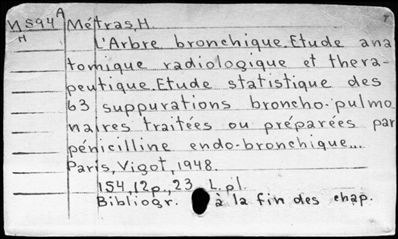 WS94 A Métras,H.
H
L'Arbre bronchique.Etude ana
tomique radiologique et thera-
peutique.Etude statistique des
63 suppurations broncho-pulmo
naires traitées ou préparées par
pénicilline endo-bronchique...
Paris,Vigot,1948.
154,12p.,23 L.pl.
Bibliogr. à la fin des chap.